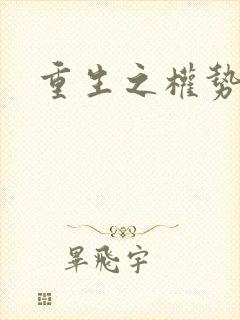 重生之權勢
畢飛宇